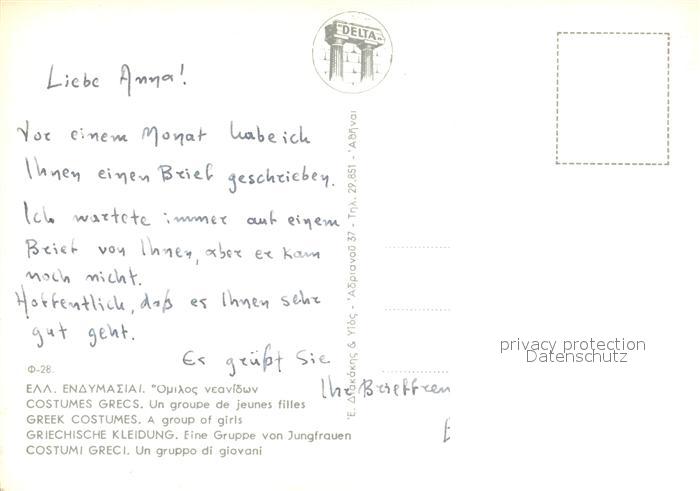 "DELTA"
Liebe Anna!
Vor einem Monat habe ich
Ihnen einen Brief geschrieben.
Ich wartete immer auf einem
Brief von Ihnen, aber er kam
noch nicht.
Hoffentlich, daß es Ihnen sehr
gut geht.
Es grüßt Sie
Ihr Brieffreun
Φ-28.
ΕΛΛ. ΕΝΔΥΜΑΣΙΑΙ. Ὅμιλος νεανίδων
COSTUMES GRECS. Un groupe de jeunes filles
GREEK COSTUMES. A group of girls
GRIECHISCHE KLEIDUNG. Eine Gruppe von Jungfrauen
COSTUMI GRECI. Un gruppo di giovani
& Υἱὸς - Ἀδριανοῦ 37 - Τηλ. 29.851 - Ἀθῆναι
privacy protection
Datenschutz